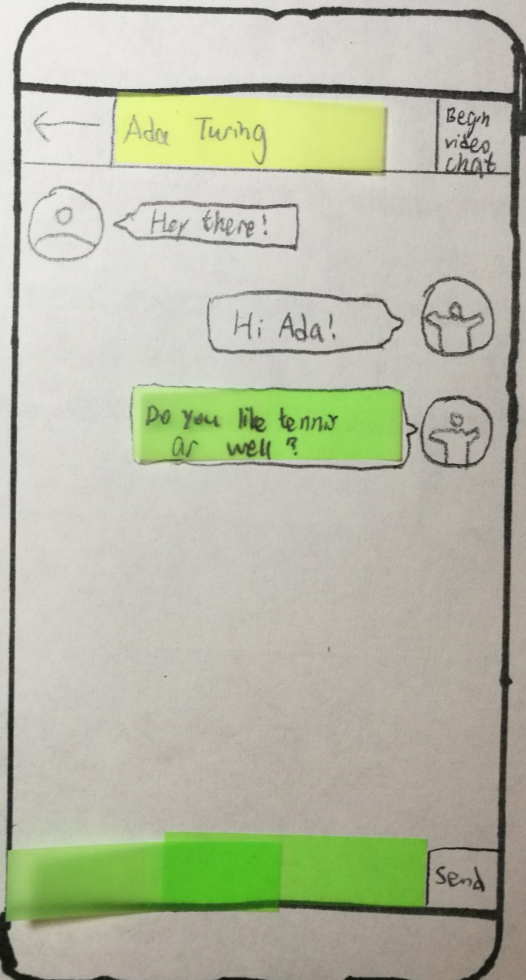 Ada Turing
Begin
video
chat
Hey there!
Hi Ada!
Do you like tennis
as well?
Send